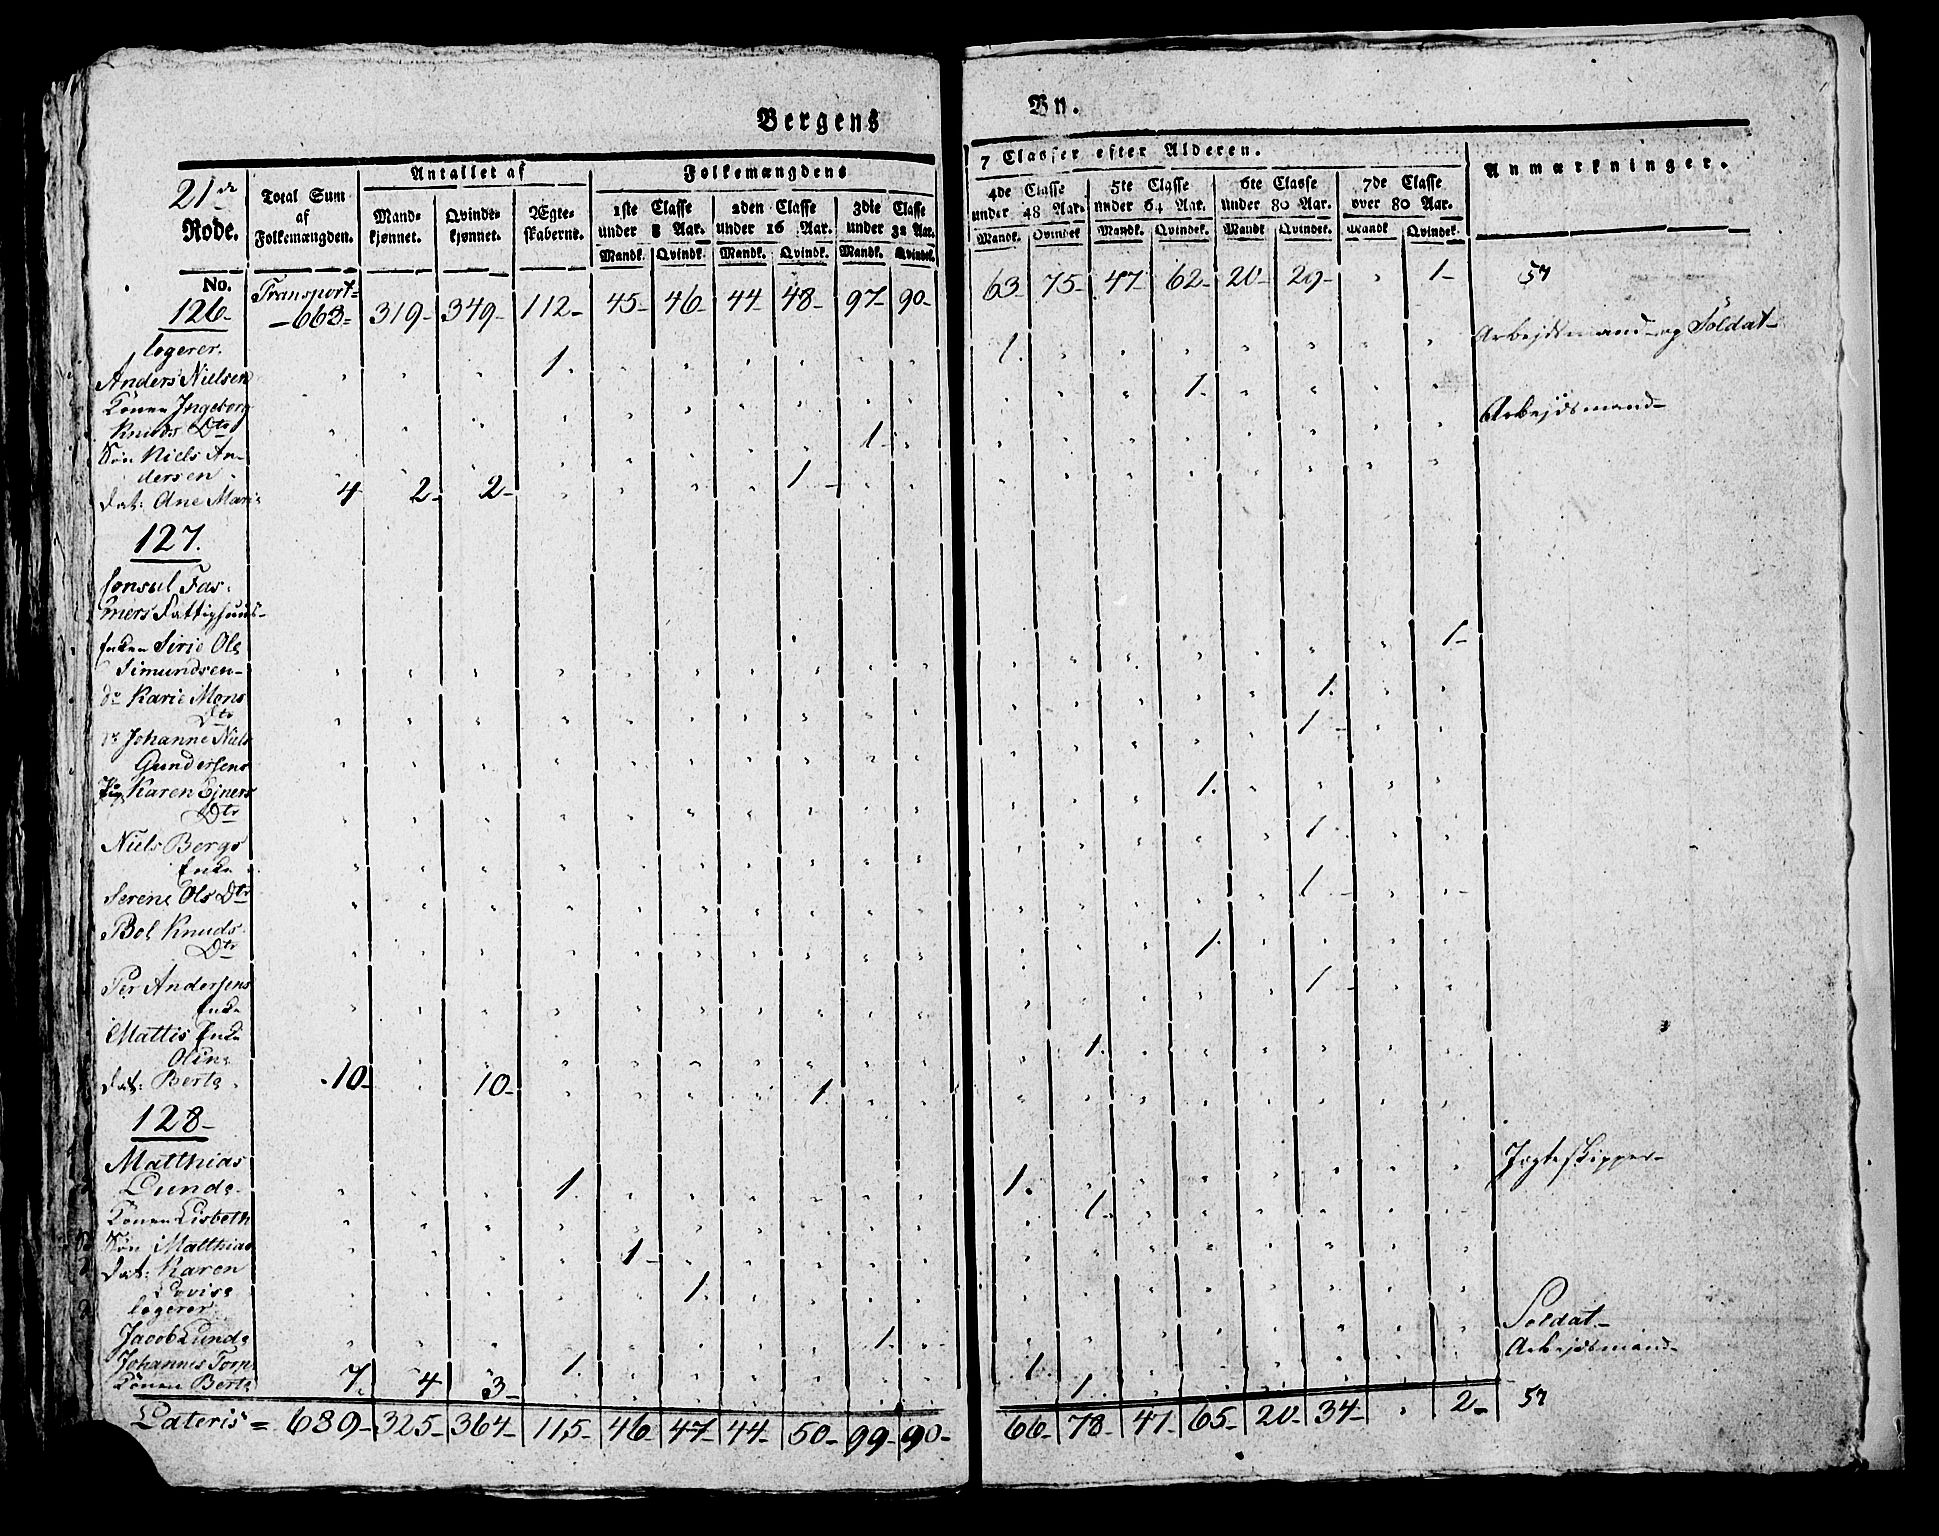 Bergens By.
21de Rode.
Total Sum af Folkemængden.
Antallet af
Mandkjønnet. Qvindekjønnet. Ægteskaberne.
Folkemængdens 7 Classer efter Alderen.
1ste Classe under 8 Aar. 2den Classe under 16 Aar. 3die Classe under 32 Aar. 4de Classe under 48 Aar. 5te Classe under 64 Aar. 6te Classe under 80 Aar. 7de Classe over 80 Aar.
Mandk. Qvindk. Mandk. Qvindk. Mandk. Qvindk. Mandk. Qvindek Mandk. Qvindek. Mandk Qvindek. Mandk Qvindek.
Anmærkninger.
No. Transport=
126- -668= 319- 349- 112- 45- 46- 44- 48- 97- 90- 63- 75- 47- 62- 20- 29- " 1-
logerer.
Anders Nielsen 1. 1. Arbejdsmand og Soldat-
Konen Ingeborg
Knuds Dtr 1.
Søn Niels An- 1- Arbejdsmand-
dersen
Dat: Ane Marie 4 2- 2- 1-
127.
Consul Fas-
mers Fattighuus-
Enken Sirie Ols
Simundsen- 1-
do Karie Mons
Dtr 1.
do Johanne Niels
Gundersens 1-
Pig Karen Ejners
Dtr 1.
Niels Bergs
Enke 1-
Serene Ols Dtr 1-
Bol Knuds
Dtr 1.
Per Andersens
Enke 1-
Mattis Enke
Oline 1.
Dat: Berte. 10- 10- 1
128-
Matthias
Lunde- 1. 1. Jagteskipper-
Konen Lisbeth 1-
Søn Matthias 1-
Dat: Karen
Lovise 1.
logerer
Jacob Lunde 1- Soldat-
Johannes Torn 1. 1. Arbejdsmand-
Konen Berte 7. 4 3- 1.
Lateris= 689- 325- 364- 115- 46- 47- 44- 50- 99- 90- 66- 78- 47- 65- 20- 34- . 2-